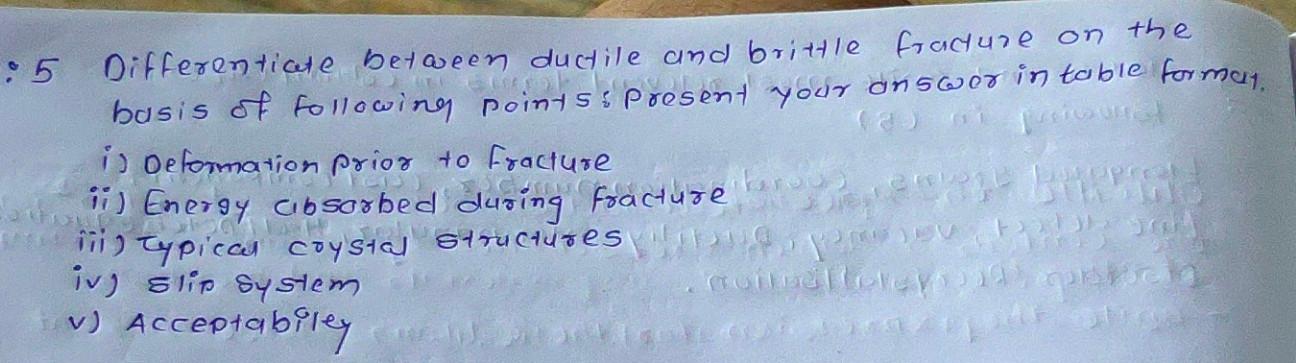 : 5 Differentiate between ductile and brittle fracture on the
basis of following points: Present your answer in table format.
i) Deformation prior to fracture
ii) Energy absorbed during fracture
iii) Typical crystal structures
iv) Slip system
v) Acceptabiley